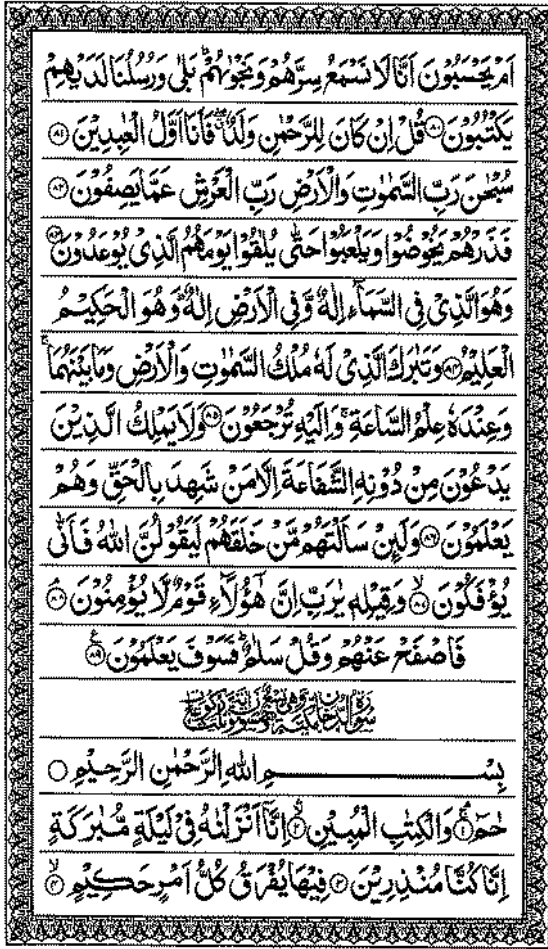 اَمْ يَحْسَبُوْنَ اَنَّا لَا نَسْمَعُ سِرَّهُمْ وَنَجْوٰىهُمْ ؕ بَلٰى وَرُسُلُنَا لَدَيْهِمْ
يَكْتُبُوْنَ ۝۸۰ قُلْ اِنْ كَانَ لِلرَّحْمٰنِ وَلَدٌ ۖ فَاَنَا اَوَّلُ الْعٰبِدِيْنَ ۝۸۱
سُبْحٰنَ رَبِّ السَّمٰوٰتِ وَالْاَرْضِ رَبِّ الْعَرْشِ عَمَّا يَصِفُوْنَ ۝۸۲
فَذَرْهُمْ يَخُوْضُوْا وَيَلْعَبُوْا حَتّٰى يُلٰقُوْا يَوْمَهُمُ الَّذِىْ يُوْعَدُوْنَ ۝۸۳
وَهُوَ الَّذِىْ فِى السَّمَآءِ اِلٰهٌ وَّفِى الْاَرْضِ اِلٰهٌ ؕ وَهُوَ الْحَكِيْمُ
الْعَلِيْمُ ۝۸۴ وَتَبٰرَكَ الَّذِىْ لَهٗ مُلْكُ السَّمٰوٰتِ وَالْاَرْضِ وَمَا بَيْنَهُمَا ۚ
وَعِنْدَهٗ عِلْمُ السَّاعَةِ ۚ وَاِلَيْهِ تُرْجَعُوْنَ ۝۸۵ وَلَا يَمْلِكُ الَّذِيْنَ
يَدْعُوْنَ مِنْ دُوْنِهِ الشَّفَاعَةَ اِلَّا مَنْ شَهِدَ بِالْحَقِّ وَهُمْ
يَعْلَمُوْنَ ۝۸۶ وَلَئِنْ سَاَلْتَهُمْ مَّنْ خَلَقَهُمْ لَيَقُوْلُنَّ اللّٰهُ فَاَنّٰى
يُؤْفَكُوْنَ ۝۸۷ وَقِيْلِهٖ يٰرَبِّ اِنَّ هٰٓؤُلَآءِ قَوْمٌ لَّا يُؤْمِنُوْنَ ۝۸۸
فَاصْفَحْ عَنْهُمْ وَقُلْ سَلٰمٌ ؕ فَسَوْفَ يَعْلَمُوْنَ ۝۸۹
سُوْرَةُ الدُّخَانِ مَكِّيَّةٌ
بِسْمِ اللّٰهِ الرَّحْمٰنِ الرَّحِيْمِ ۝
حٰمٓ ۝۱ وَالْكِتٰبِ الْمُبِيْنِ ۝۲ اِنَّآ اَنْزَلْنٰهُ فِىْ لَيْلَةٍ مُّبٰرَكَةٍ
اِنَّا كُنَّا مُنْذِرِيْنَ ۝۳ فِيْهَا يُفْرَقُ كُلُّ اَمْرٍ حَكِيْمٍ ۝۴